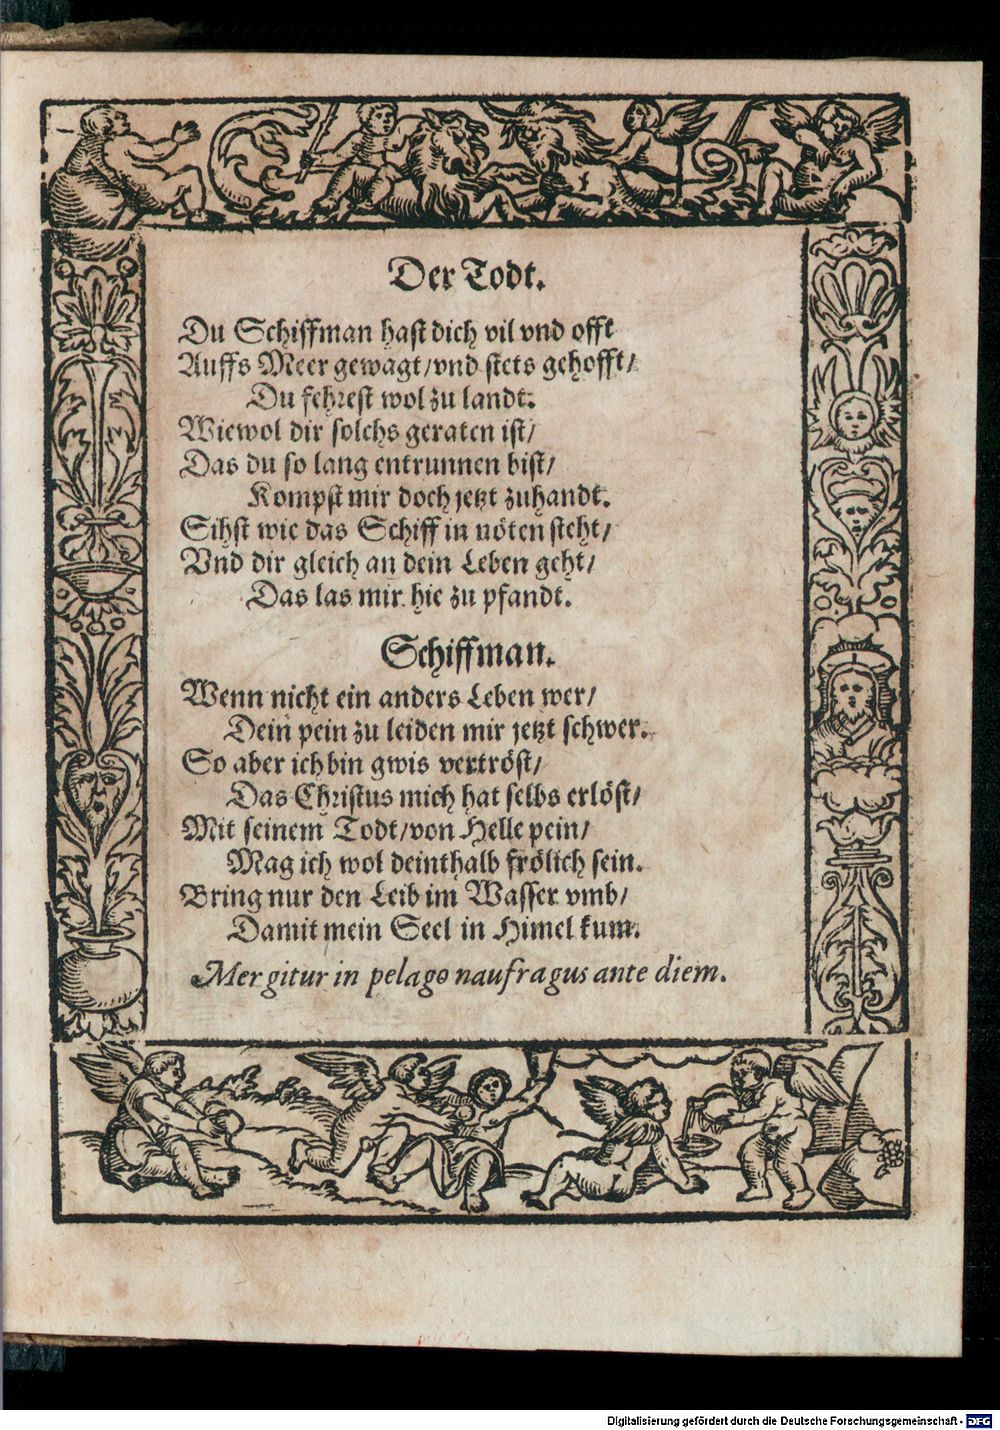 Der Todt.
Du Schiffman hast dich vil vnd offt
Auffs Meer gewagt/vnd stets gehofft/
Du fehrest wol zu landt:
Wiewol dir solchs geraten ist/
Das du so lang entrunnen bist/
Kompst mir doch jetzt zuhandt.
Sihst wie das Schiff in nöten steht/
Vnd dir gleich an dein Leben geht/
Das las mir hie zu pfandt.
Schiffman.
Wenn nicht ein anders Leben wer/
Dein pein zu leiden mir jetzt schwer.
So aber ich bin gwis vertröst/
Das Christus mich hat selbs erlöst/
Mit seinem Todt/von Helle pein/
Mag ich wol deinthalb frölich sein.
Bring nur den Leib im Wasser vmb/
Damit mein Seel in Himel kum.
Mergitur in pelago naufragus ante diem.
Digitalisierung gefördert durch die Deutsche Forschungsgemeinschaft - DFG